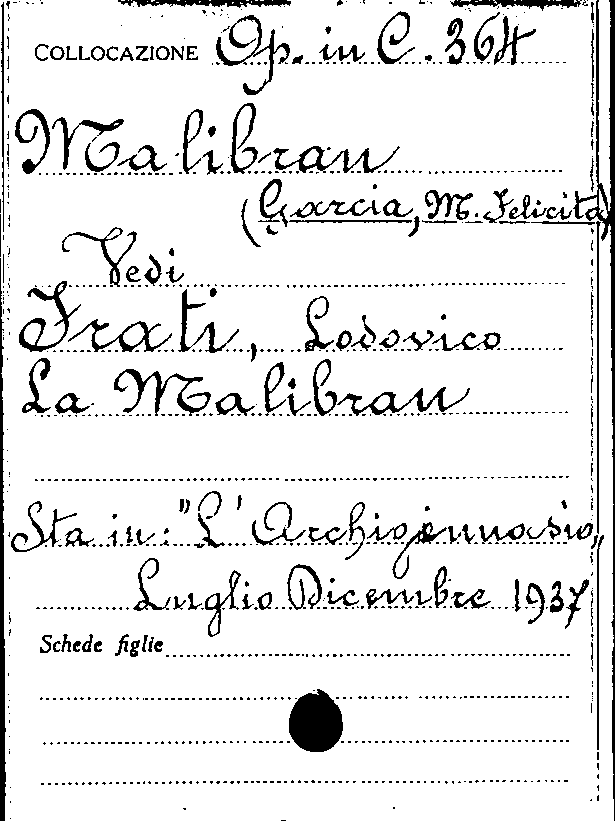 COLLOCAZIONE Op. in C. 364
Malibran
(Garcia, M. Felicita)
Vedi
Frati, Lodovico
La Malibran
Sta in: "L'Archiginnasio„
Luglio Dicembre 1937
Schede figlie